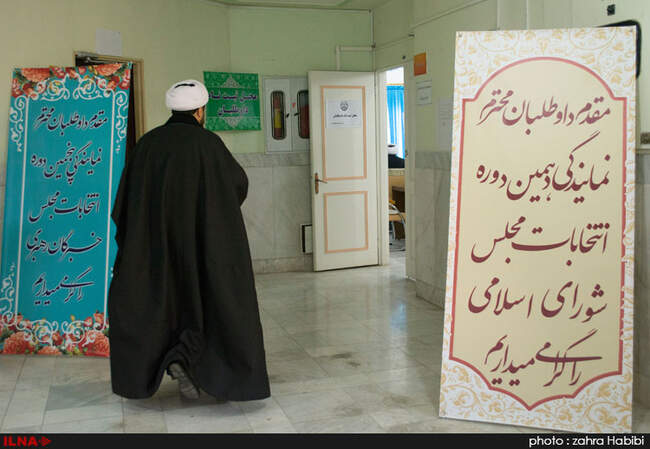 مقدم داوطلبان محترم
نمایندگی دهمین دوره
انتخابات مجلس
شورای اسلامی
را گرامی میداریم
مقدم داوطلبان محترم
نمایندگی پنجمین دوره
انتخابات مجلس
خبرگان رهبری
را گرامی میداریم
محل ثبت نام
داوطلبان
ILNA
photo : zahra Habibi